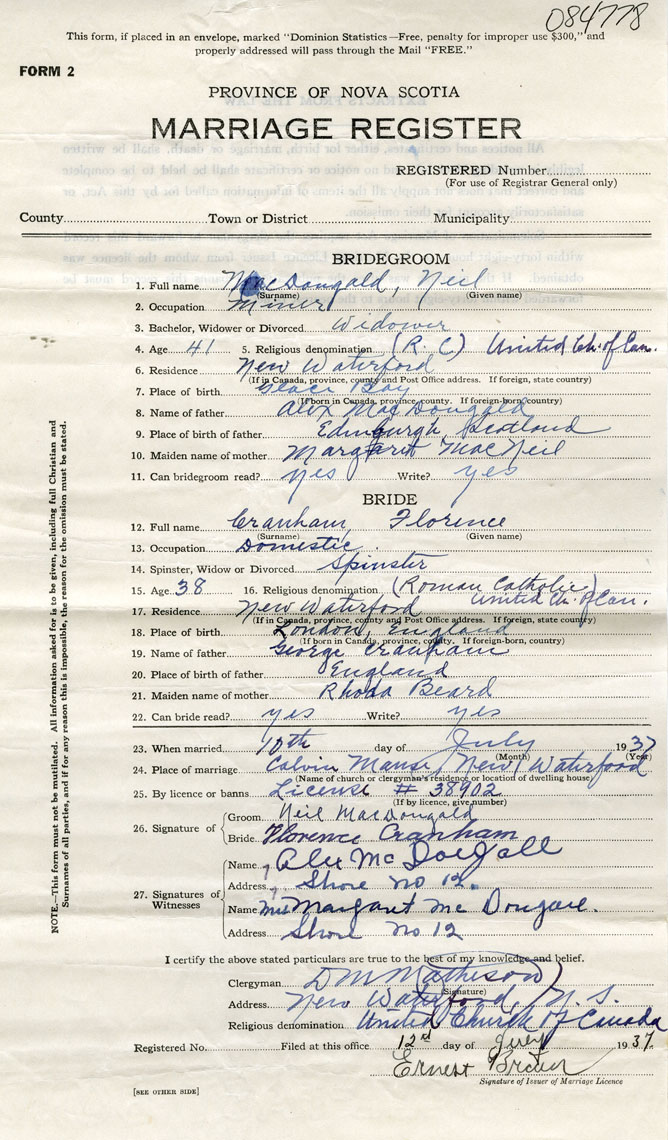 084778
This form, if placed in an envelope, marked "Dominion Statistics—Free, penalty for improper use $300," and
properly addressed will pass through the Mail "FREE."
FORM 2
PROVINCE OF NOVA SCOTIA
MARRIAGE REGISTER
REGISTERED Number
(For use of Registrar General only)
County Town or District Municipality
BRIDEGROOM
1. Full name MacDougald, Neil
(Surname) (Given name)
2. Occupation Miner
3. Bachelor, Widower or Divorced Widower
4. Age 41 5. Religious denomination (R. C) United Ch. of Can.
6. Residence New Waterford
(If in Canada, province, county and Post Office address. If foreign, state country)
7. Place of birth Glace Bay
(If born in Canada, province, county. If foreign-born, country)
8. Name of father Alex MacDougald
9. Place of birth of father Edinburgh Scotland
10. Maiden name of mother Margaret MacNeil
11. Can bridegroom read? yes Write? yes
BRIDE
12. Full name Cranham, Florence
(Surname) (Given name)
13. Occupation Domestic
14. Spinster, Widow or Divorced Spinster
15. Age 38 16. Religious denomination (Roman Catholic)
United Ch. of Can.
17. Residence New Waterford
(If in Canada, province, county and Post Office address. If foreign, state country)
18. Place of birth London, England
(If born in Canada, province, county. If foreign-born, country)
19. Name of father George Cranham
20. Place of birth of father England
21. Maiden name of mother Rhoda Beard
22. Can bride read? yes Write? yes
23. When married 10th day of July 1937
(Month) (Year)
24. Place of marriage Calvin Manse, New Waterford
(Name of church or clergyman's residence, or location of dwelling house)
25. By licence or banns License # 38902
(If by licence, give number)
26. Signature of
Groom Neil MacDougald
Bride Florence Cranham
27. Signatures of Witnesses
Name Alex McDougall
Address Shore No 12.
Name Mrs Margaret McDougall.
Address Shore No 12
I certify the above stated particulars are true to the best of my knowledge and belief.
Clergyman D M Matheson
(Signature)
Address New Waterford, N. S.
Religious denomination United Church of Canada
Registered No. Filed at this office 12 day of July 1937.
Ernest Brown
Signature of Issuer of Marriage Licence
[SEE OTHER SIDE]
NOTE.—This form must not be mutilated. All information asked for is to be given, including full Christian and
Surnames of all parties, and if for any reason this is impossible, the reason for the omission must be stated.